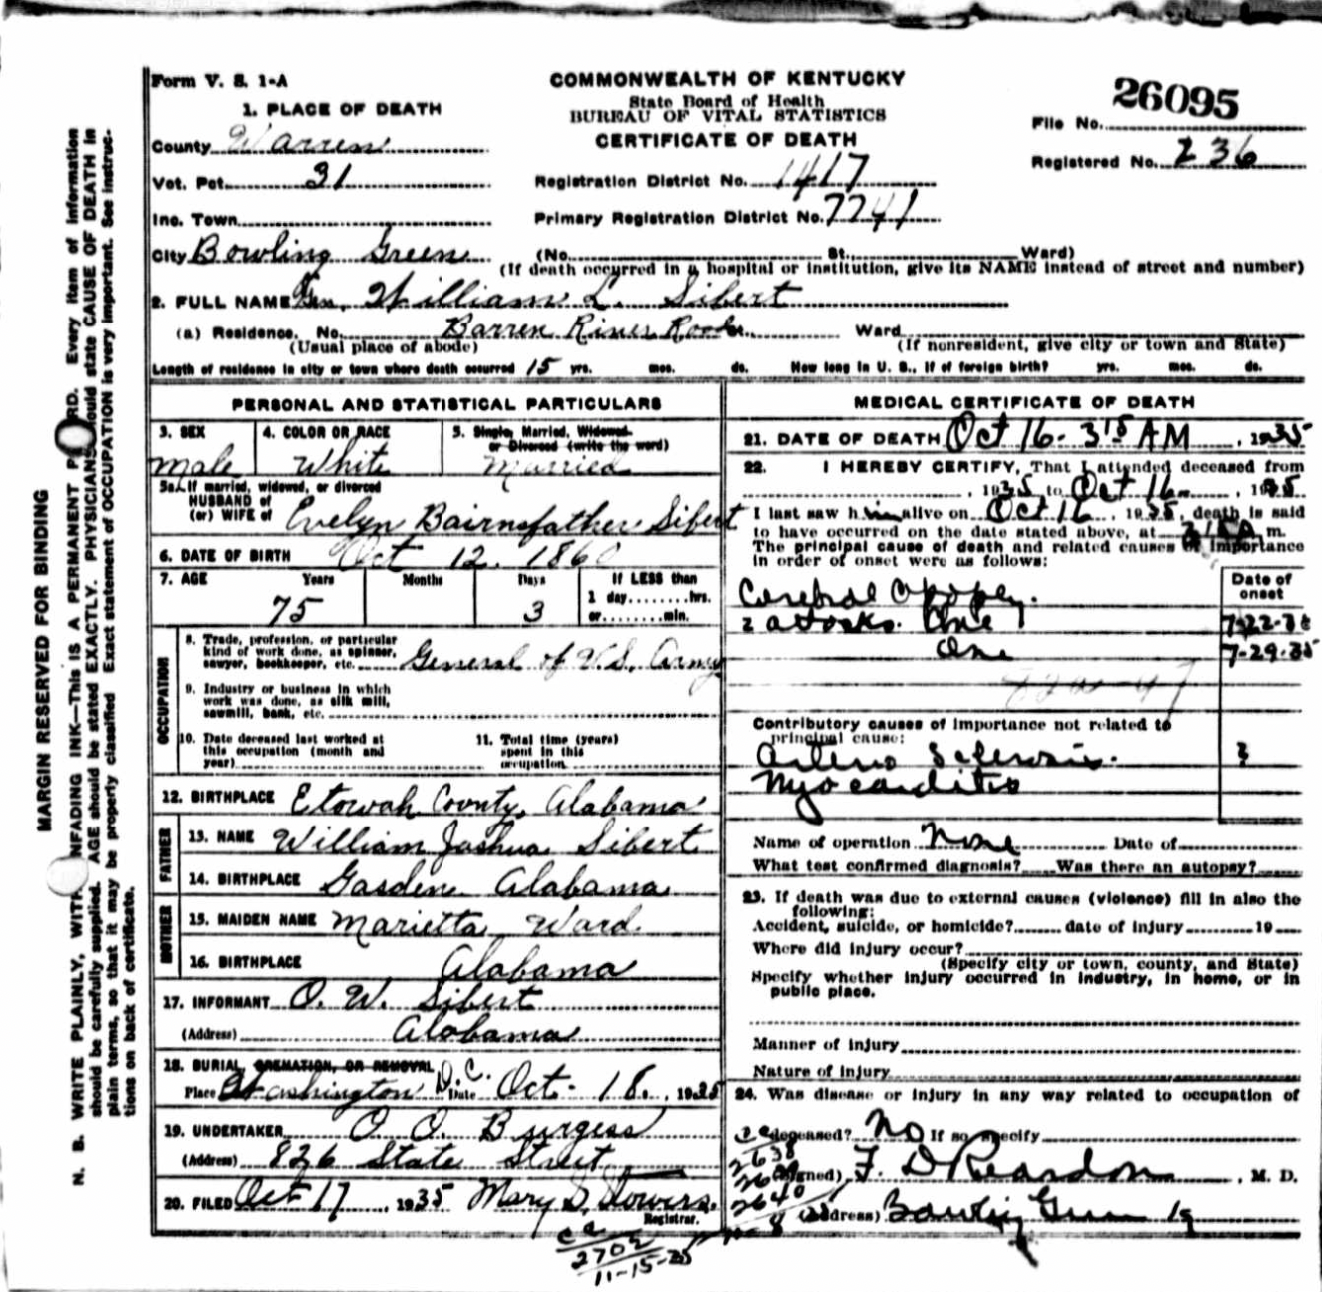 Form V. S. 1-A
COMMONWEALTH OF KENTUCKY
State Board of Health
BUREAU OF VITAL STATISTICS
CERTIFICATE OF DEATH
26095
File No.
Registered No. 236
1. PLACE OF DEATH
County Warren
Vot. Pct. 31
Registration District No. 1417
Inc. Town
Primary Registration District No. 7741
City Bowling Green (No. St. Ward)
(If death occurred in a hospital or institution, give its NAME instead of street and number)
2. FULL NAME Gen. William L. Sibert
(a) Residence. No. Barren River Road Ward
(Usual place of abode) (If nonresident, give city or town and State)
Length of residence in city or town where death occurred 15 yrs. mos. ds. How long in U. S., if of foreign birth? yrs. mos. ds.
PERSONAL AND STATISTICAL PARTICULARS
3. SEX 4. COLOR OR RACE 5. Single, Married, Widowed
or Divorced (write the word)
male White Married
5a. If married, widowed, or divorced
HUSBAND of
(or) WIFE of Evelyn Bairnsfather Sibert
6. DATE OF BIRTH Oct 12. 1860
7. AGE Years Months Days If LESS than
1 day........hrs.
75 3 or........min.
OCCUPATION
8. Trade, profession, or particular
kind of work done, as spinner,
sawyer, bookkeeper, etc. General of U.S. Army
9. Industry or business in which
work was done, as silk mill,
sawmill, bank, etc.
10. Date deceased last worked at
this occupation (month and
year)
11. Total time (years)
spent in this
occupation
12. BIRTHPLACE Etowah County, Alabama
FATHER
13. NAME William Joshua Sibert
14. BIRTHPLACE Gasden Alabama
MOTHER
15. MAIDEN NAME Marietta Ward
16. BIRTHPLACE Alabama
17. INFORMANT O. W. Sibert
(Address) Alabama
18. BURIAL, CREMATION, OR REMOVAL
Place Washington D.C. Date Oct. 18, 1935
19. UNDERTAKER O. O. Burgess
(Address) 826 State Street
20. FILED Oct 17, 1935 Mary S. Stowers
Registrar.
2702
11-15-35
MEDICAL CERTIFICATE OF DEATH
21. DATE OF DEATH Oct 16- 315 AM, 1935
22. I HEREBY CERTIFY, That I attended deceased from
, 1935 to Oct 16, 1935
I last saw him alive on Oct 16, 1935, death is said
to have occurred on the date stated above, at 315A m.
The principal cause of death and related causes of importance
in order of onset were as follows:
Date of
onset
Cerebral
2 attacks. One 7-22-35
One 7-29-35
Contributory causes of importance not related to
principal cause:
Arterio Sclerosis. ?
Myocarditis
Name of operation None Date of
What test confirmed diagnosis? Was there an autopsy?
23. If death was due to external causes (violence) fill in also the
following:
Accident, suicide, or homicide? date of injury 19
Where did injury occur?
(Specify city or town, county, and State)
Specify whether injury occurred in industry, in home, or in
public place.
Manner of injury
Nature of injury
24. Was disease or injury in any way related to occupation of
deceased? No If so, specify
(Signed) F. D Reardon, M. D.
(Address) Bowling Green Ky
2638
2640
MARGIN RESERVED FOR BINDING
N. B. WRITE PLAINLY, WITH UNFADING INK—This is a PERMANENT RECORD. Every item of information
should be carefully supplied. AGE should be stated EXACTLY. PHYSICIANS should state CAUSE OF DEATH in
plain terms, so that it may be properly classified. Exact statement of OCCUPATION is very important. See instruc-
tions on back of certificate.